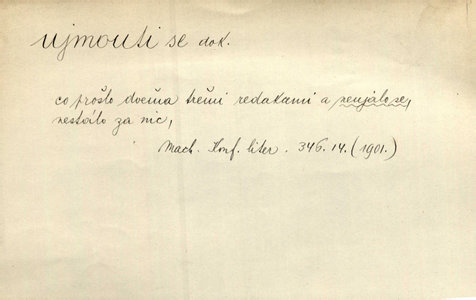 ujmouti se dok.
co prošlo dvěma třemi redakcemi a neujalo se,
nestálo za nic,
Mach. Konf. liter. 346.14. (1901.)